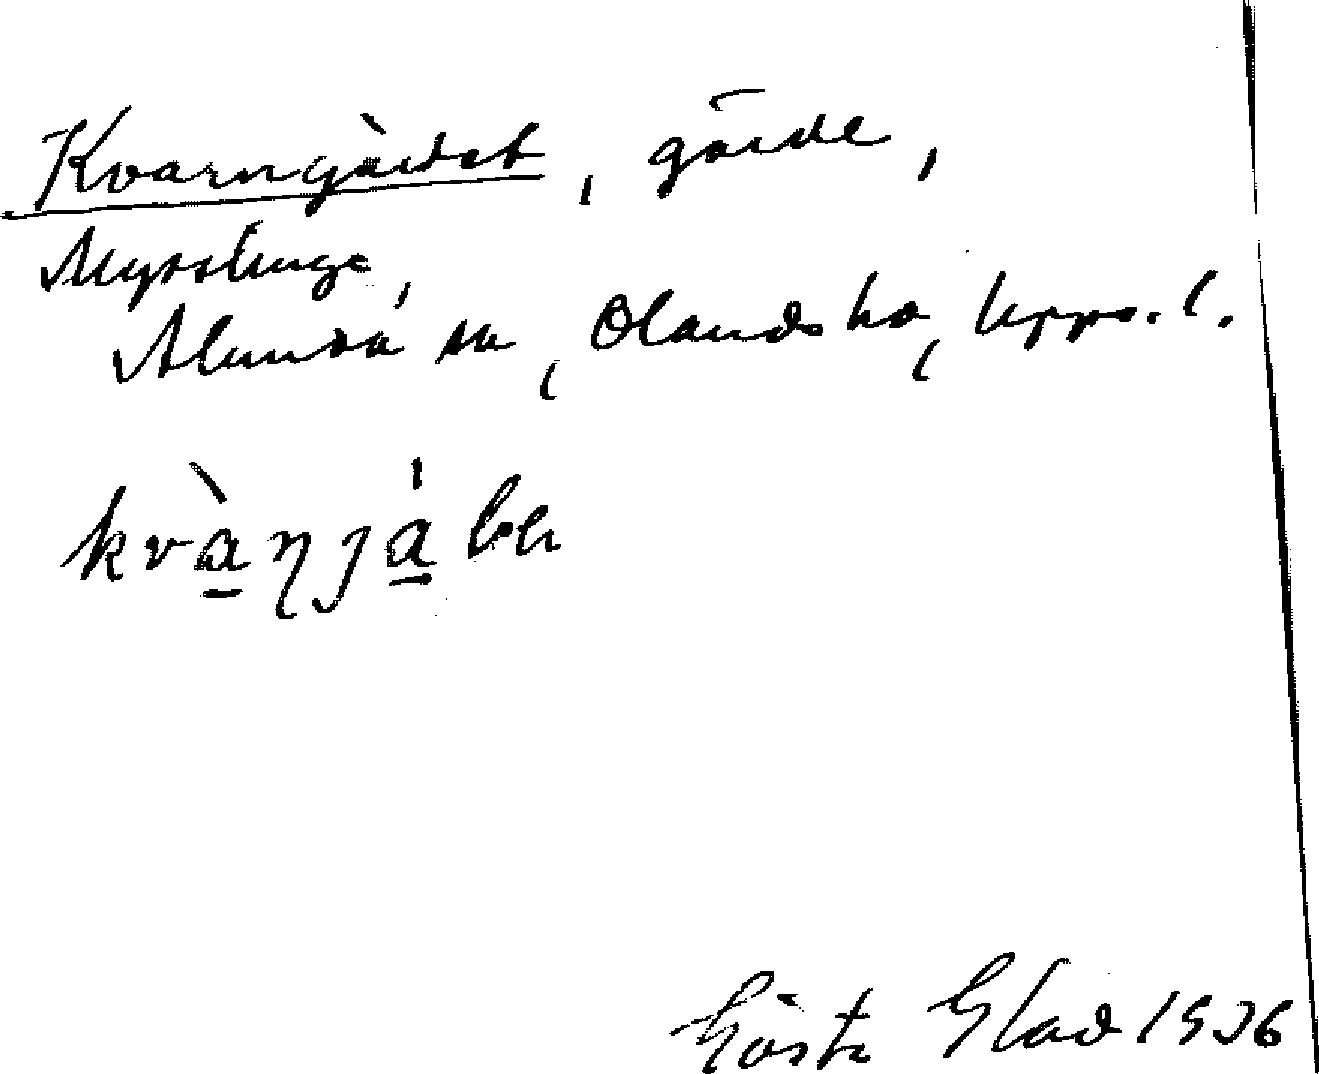 Kvarngärdet, gärde,
Myrslinge,
Alunda sn, Olands hd, Upps. l.
Gösta Glad 1936